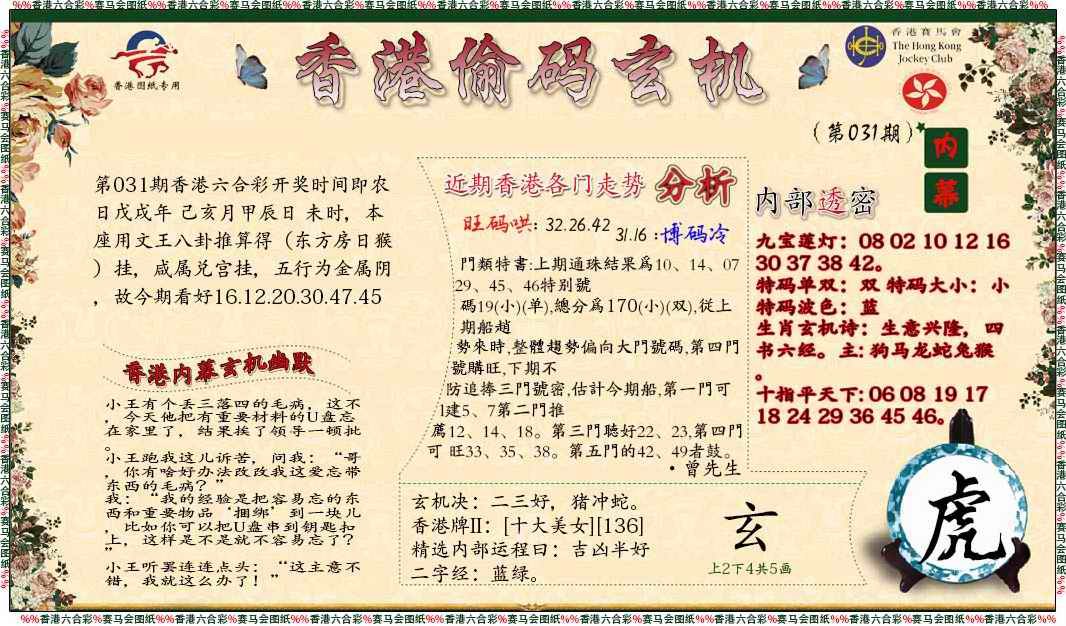 %%香港六合彩%赛马会图纸%%香港六合彩%赛马会图纸%%香港六合彩%赛马会图纸%%香港六合彩%赛马会图纸%%香港六合彩%赛马会图纸%%香港六合彩%%香港六合彩%%
香港图纸专用
香港偷码玄机
香港賽馬會
The Hong Kong
Jockey Club
（第031期）
内
幕
第031期香港六合彩开奖时间即农
日戊戌年 己亥月甲辰日 未时，本
座用文王八卦推算得（东方房日猴
）挂，咸属兑宫挂，五行为金属阴
，故今期看好16.12.20.30.47.45
香港内幕玄机幽默
小王有个丢三落四的毛病，这不
，今天他把有重要材料的U盘忘
在家里了，结果挨了领导一顿批
。
小王跑我这儿诉苦，问我：“哥
，你有啥好办法改改我这爱忘带
东西的毛病？”
我：“我的经验是把容易忘的东
西和重要物品‘捆绑’到一块儿
，比如你可以把U盘串到钥匙扣
上，这样是不是就不容易忘了？
”
小王听罢连连点头：“这主意不
错，我就这么办了！”
近期香港各门走势 分析
旺码哄：32.26.42
31.16：博码冷
門類特書:上期通珠結果爲10、14、07
29、45、46特别號
碼19(小)(单),總分爲170(小)(双),從上
期船趙
勢來時,整體趨勢偏向大門號碼,第四門
號購旺,下期不
防追捧三門號密,估計今期船,第一門可
1建5、7第二門推
薦12、14、18。第三門聽好22、23,第四門
可 旺33、35、38。第五門的42、49者鼓。
・曾先生
玄机决：二三好，猪冲蛇。
香港牌II：[十大美女][136]
精选内部运程曰：吉凶半好
二字经：蓝绿。
玄
上2下4共5画
内部透密
九宝莲灯：08 02 10 12 16
30 37 38 42。
特码单双：双 特码大小：小
特码波色：蓝
生肖玄机诗：生意兴隆，四
书六经。主：狗马龙蛇兔猴
。
十指平天下：06 08 19 17
18 24 29 36 45 46。
虎
%%香港六合彩%赛马会图纸%%香港六合彩%赛马会图纸%%香港六合彩%赛马会图纸%%香港六合彩%赛马会图纸%%香港六合彩%赛马会图纸%%香港六合彩%%香港六合彩%%